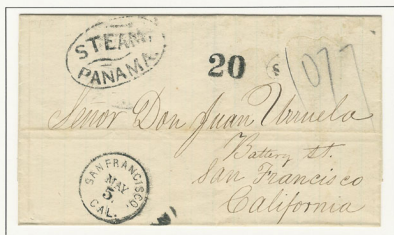 STEAM.
PANAMA.
20
Señor Don Juan Urruela
Battery St.
San Francisco
California
SAN FRANCISCO.
MAY
5
CAL.